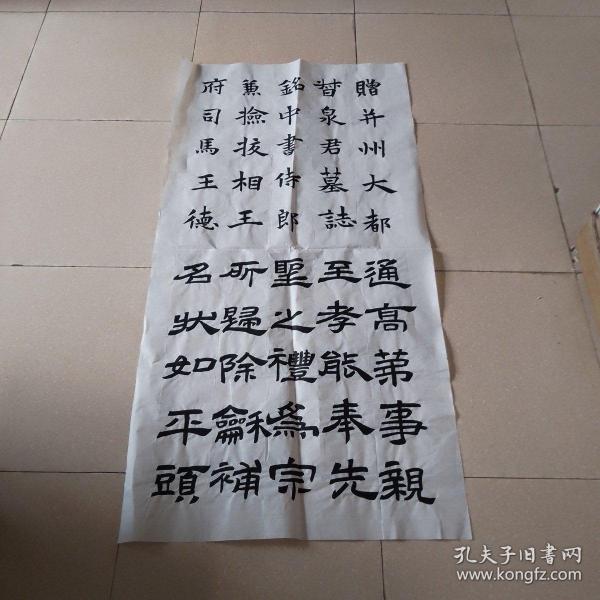 贈并州大都
督泉君墓誌
銘中書侍郎
兼撿挍相王
府司馬王德
通高第事親
至孝能奉先
聖之禮為宗
所歸除龢補
名状如平頭
孔夫子旧書网
www.kongfz.com